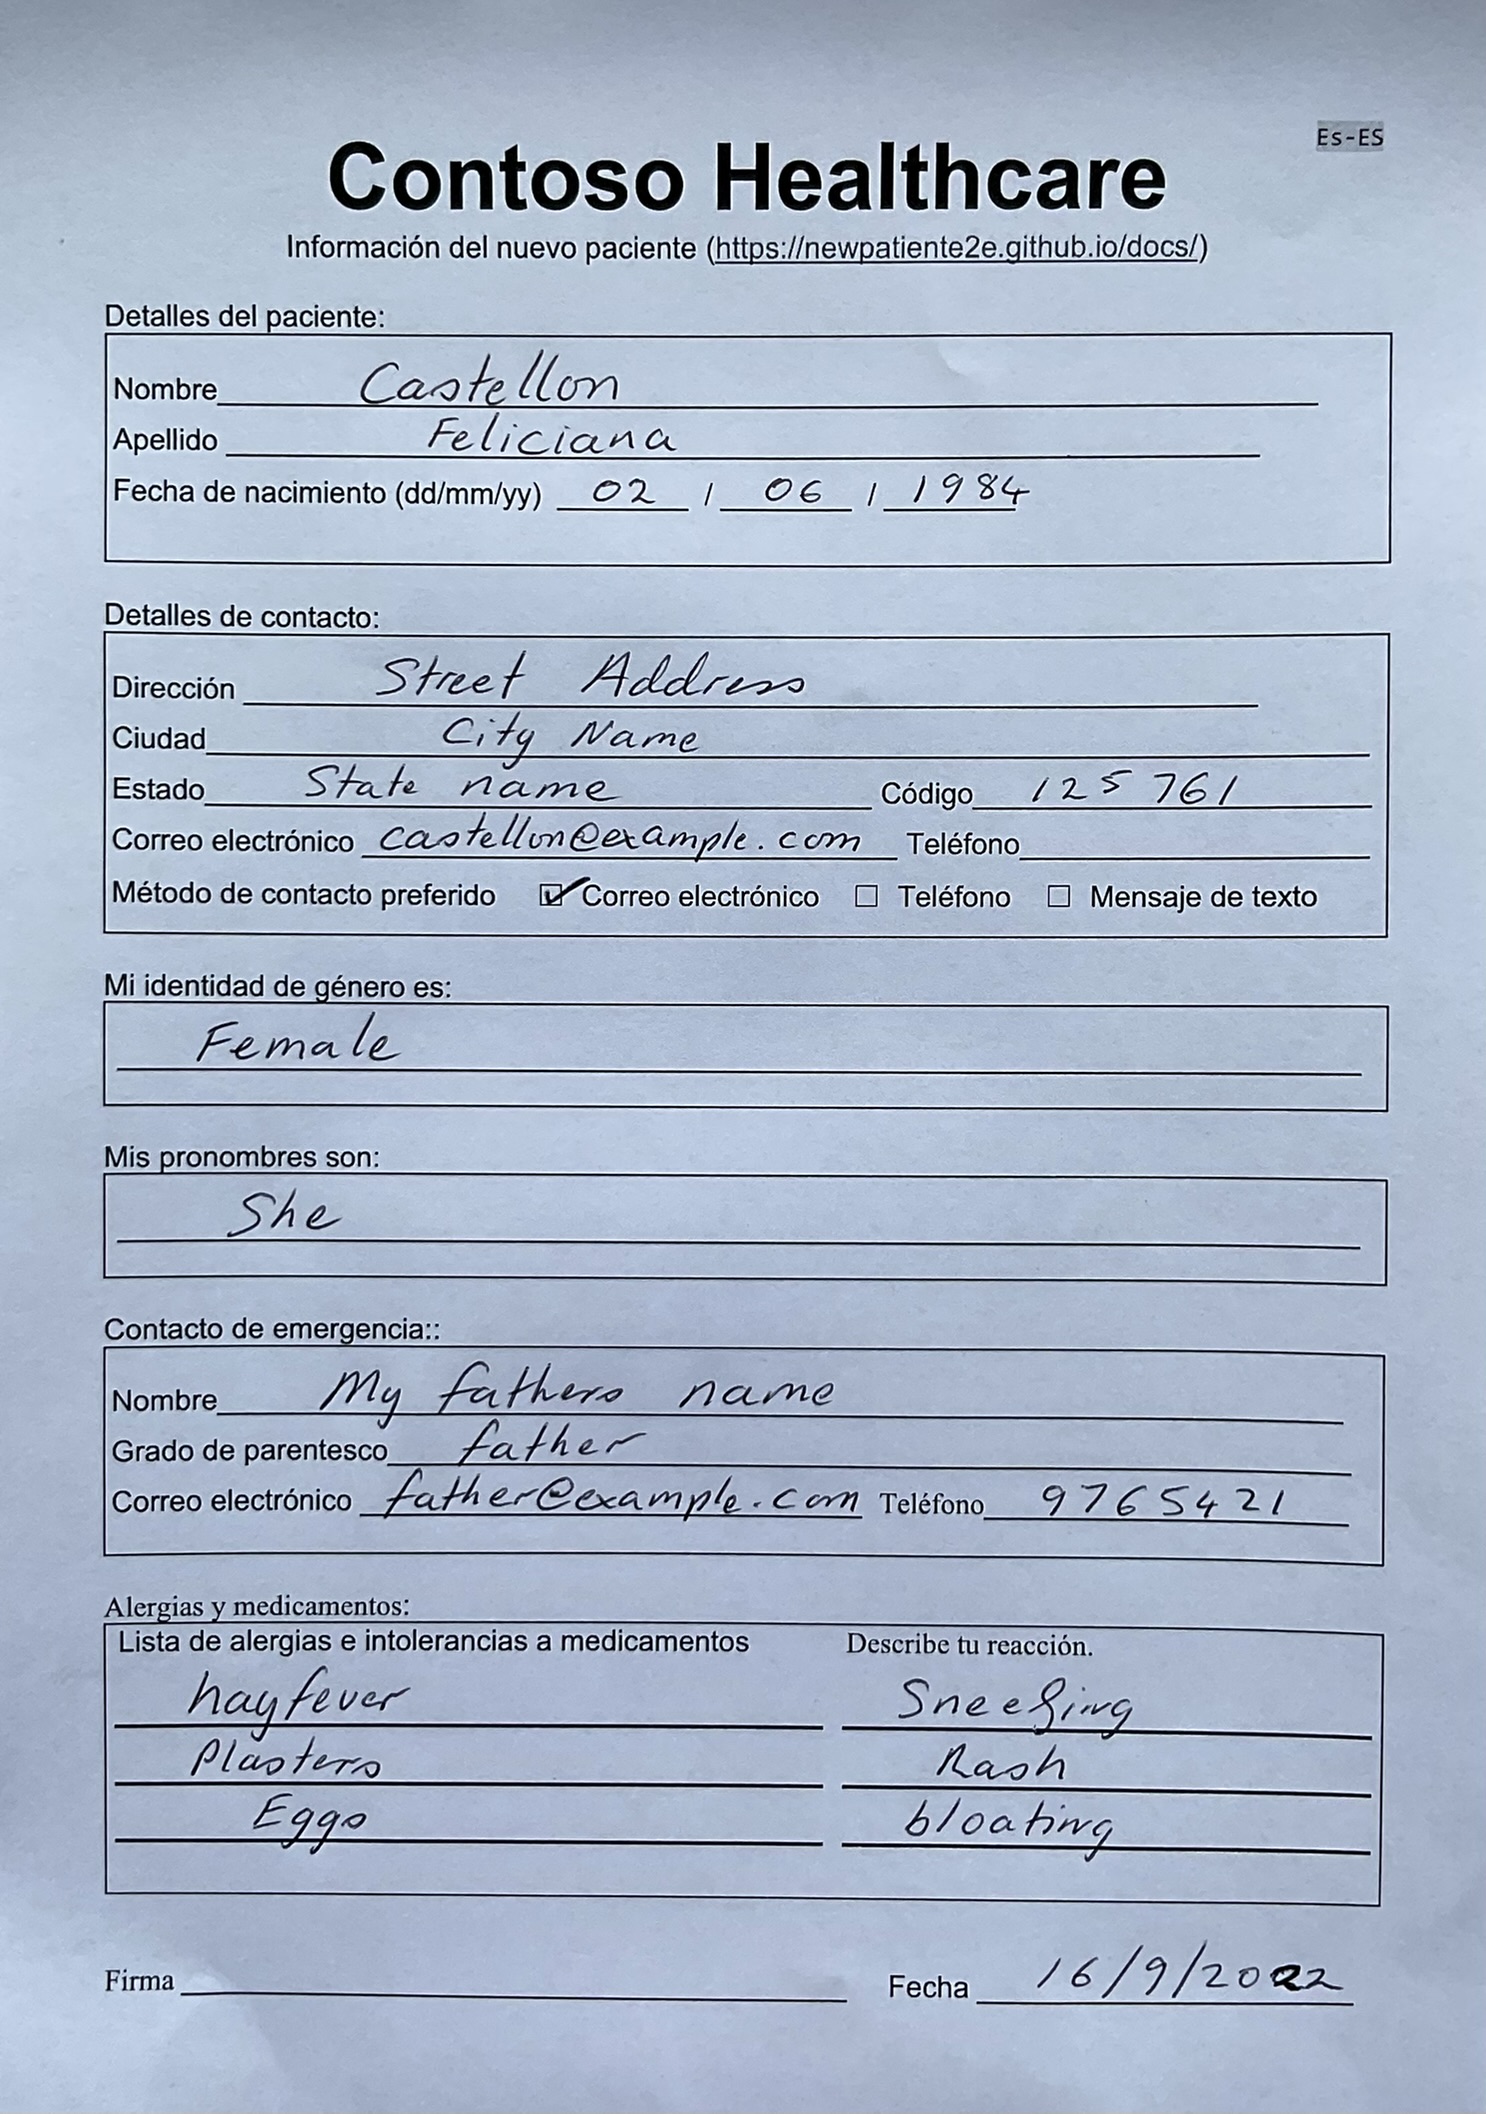 Es-ES
Contoso Healthcare
Información del nuevo paciente (https://newpatiente2e.github.io/docs/)
Detalles del paciente:
Nombre Castellon
Apellido Feliciana
Fecha de nacimiento (dd/mm/yy) 02 / 06 / 1984
Detalles de contacto:
Dirección Street Address
Ciudad City Name
Estado State name Código 125761
Correo electrónico castellon@example.com Teléfono
Método de contacto preferido ☑ Correo electrónico ☐ Teléfono ☐ Mensaje de texto
Mi identidad de género es:
Female
Mis pronombres son:
She
Contacto de emergencia::
Nombre My fathers name
Grado de parentesco father
Correo electrónico father@example.com Teléfono 9765421
Alergias y medicamentos:
Lista de alergias e intolerancias a medicamentos Describe tu reacción.
hayfever Sneezing
Plasters Rash
Eggs bloating
Firma Fecha 16/9/2022